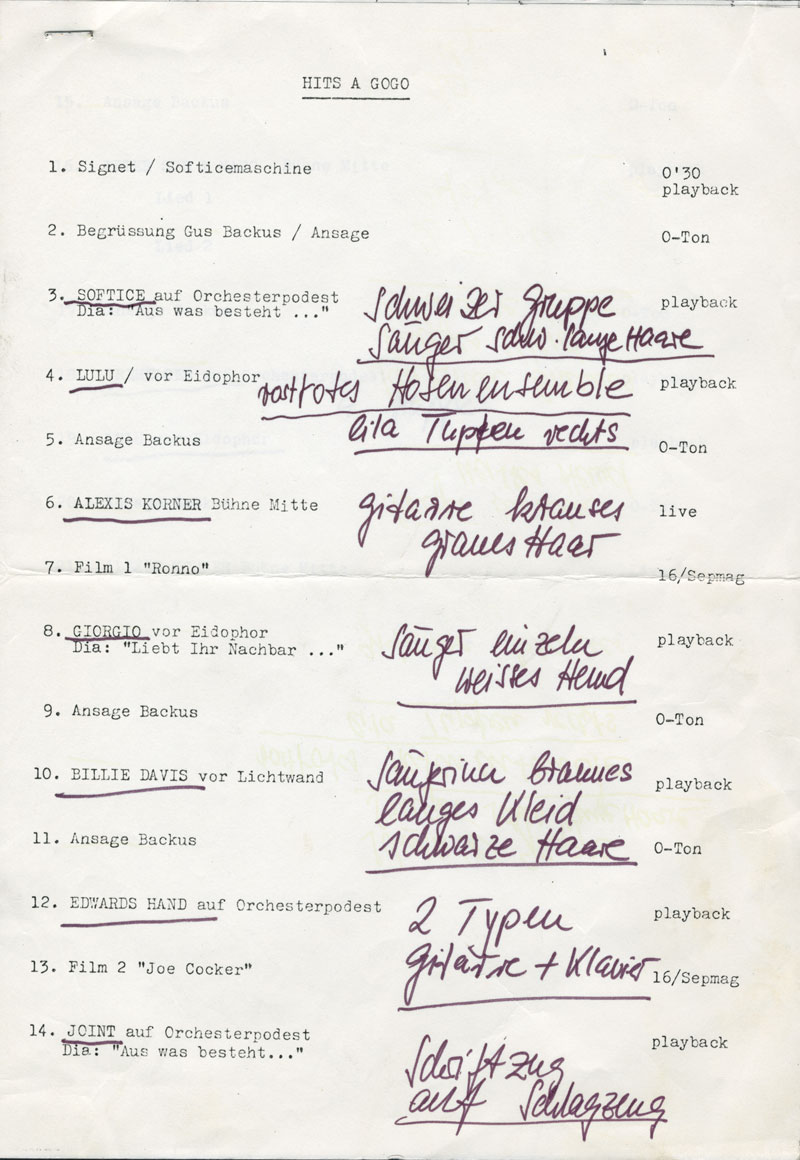 HITS A GOGO
1. Signet / Softicemaschine 0'30
playback
2. Begrüssung Gus Backus / Ansage O-Ton
3. SOFTICE auf Orchesterpodest Schweizer Gruppe playback
Dia: "Aus was besteht ..."
Sänger schw. lange Haare
4. LULU / vor Eidophor rostrotes Hosenensemble playback
lila Tupfen rechts
5. Ansage Backus O-Ton
6. ALEXIS KORNER Bühne Mitte Gitarre krauses live
graues Haar
7. Film 1 "Ronno" 16/Sepmag
8. GIORGIO vor Eidophor Sänger einzeln playback
Dia: "Liebt Ihr Nachbar ..."
weisses Hemd
9. Ansage Backus O-Ton
10. BILLIE DAVIS vor Lichtwand Sängerin braunes playback
langes Kleid
11. Ansage Backus schwarze Haare O-Ton
12. EDWARDS HAND auf Orchesterpodest 2 Typen playback
13. Film 2 "Joe Cocker" Gitarre + Klavier 16/Sepmag
14. JOINT auf Orchesterpodest playback
Dia: "Aus was besteht..."
Schriftzug
auf Schlagzeug